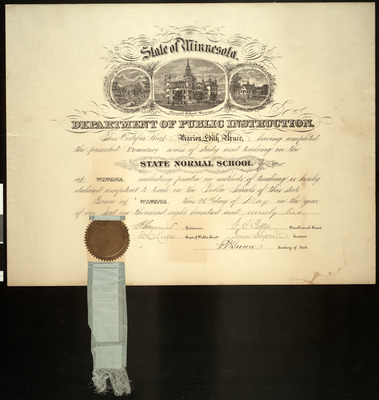 State of Minnesota.
DEPARTMENT OF PUBLIC INSTRUCTION.
This Certifies that Marion Edith Bruce, having completed
the prescribed Elementary course of study and teaching in the
STATE NORMAL SCHOOL
at WINONA including practice in methods of teaching is hereby
declared competent to teach in the Public Schools of this state
Given at WINONA this 26 day of May in the year
of our Lord one thousand eight hundred and ninety two
Governor
Supt of Public Inst
Secretary of State